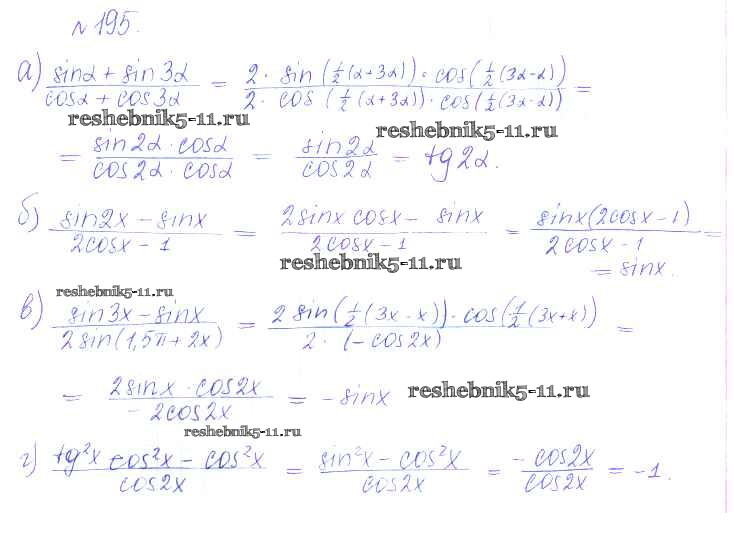 №195.
а) (sinα + sin3α)/(cosα + cos3α) = (2 · sin(½(α+3α)) · cos(½(3α-α)))/(2 · cos(½(α+3α)) · cos(½(3α-α))) =
reshebnik5-11.ru
reshebnik5-11.ru
= (sin2α · cosα)/(cos2α · cosα) = sin2α/cos2α = tg2α.
б) (sin2x - sinx)/(2cosx - 1) = (2sinx cosx - sinx)/(2cosx - 1) = (sinx(2cosx - 1))/(2cosx - 1) =
= sinx.
reshebnik5-11.ru
reshebnik5-11.ru
в) (sin3x - sinx)/(2sin(1,5π + 2x)) = (2sin(½(3x - x)) · cos(½(3x + x)))/(2 · (-cos2x)) =
= (2sinx · cos2x)/(-2cos2x) = -sinx
reshebnik5-11.ru
reshebnik5-11.ru
г) (tg²x cos²x - cos²x)/cos2x = (sin²x - cos²x)/cos2x = -cos2x/cos2x = -1.